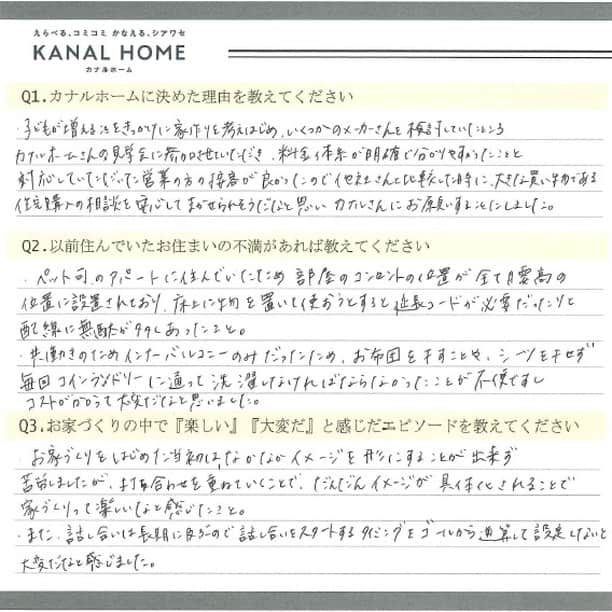 えらべる、コミコミ かなえる、シアワセ
KANAL HOME
カナルホーム
Q1.カナルホームに決めた理由を教えてください
・子どもが増えることをきっかけに家作りを考えはじめ、いくつかのメーカーさんを検討していたところ
カナルホームさんの見学会に参加させていただき、料金体系が明確で分かりやすかったことと
対応していただいた営業の方の接客が良かったので他社さんと比較した時に、大きな買い物である
住宅購入の相談を安心してまかせられそうだなと思い カナルさんにお願いすることにしました。
Q2.以前住んでいたお住まいの不満があれば教えてください
・ペット可のアパートに住んでいたため 部屋のコンセントの位置が全て腰高の
位置に設置されており、床上に物を置いて使おうとすると延長コードが必要だったりと
配線に無駄が多くあったこと。
・共働きのためインナーバルコニーのみだったため、お布団を干すことや、シーツを干せず
毎回コインランドリーに通って洗濯しなければならなかったことが不便ですし
コストがかかって大変だなと思いました。
Q3.お家づくりの中で『楽しい』『大変だ』と感じだエピソードを教えてください
・お家づくりをはじめた当初は、なかなかイメージを形にすることが出来ず
苦労しましたが、打ち合わせを重ねていくことで、だんだんイメージが具体化されることで
家づくりって楽しいなと感じたこと。
・また、話し合いは長期に及ぶので話し合いをスタートするタイミングをゴールから逆算して設定しないと
大変だなと感じました。